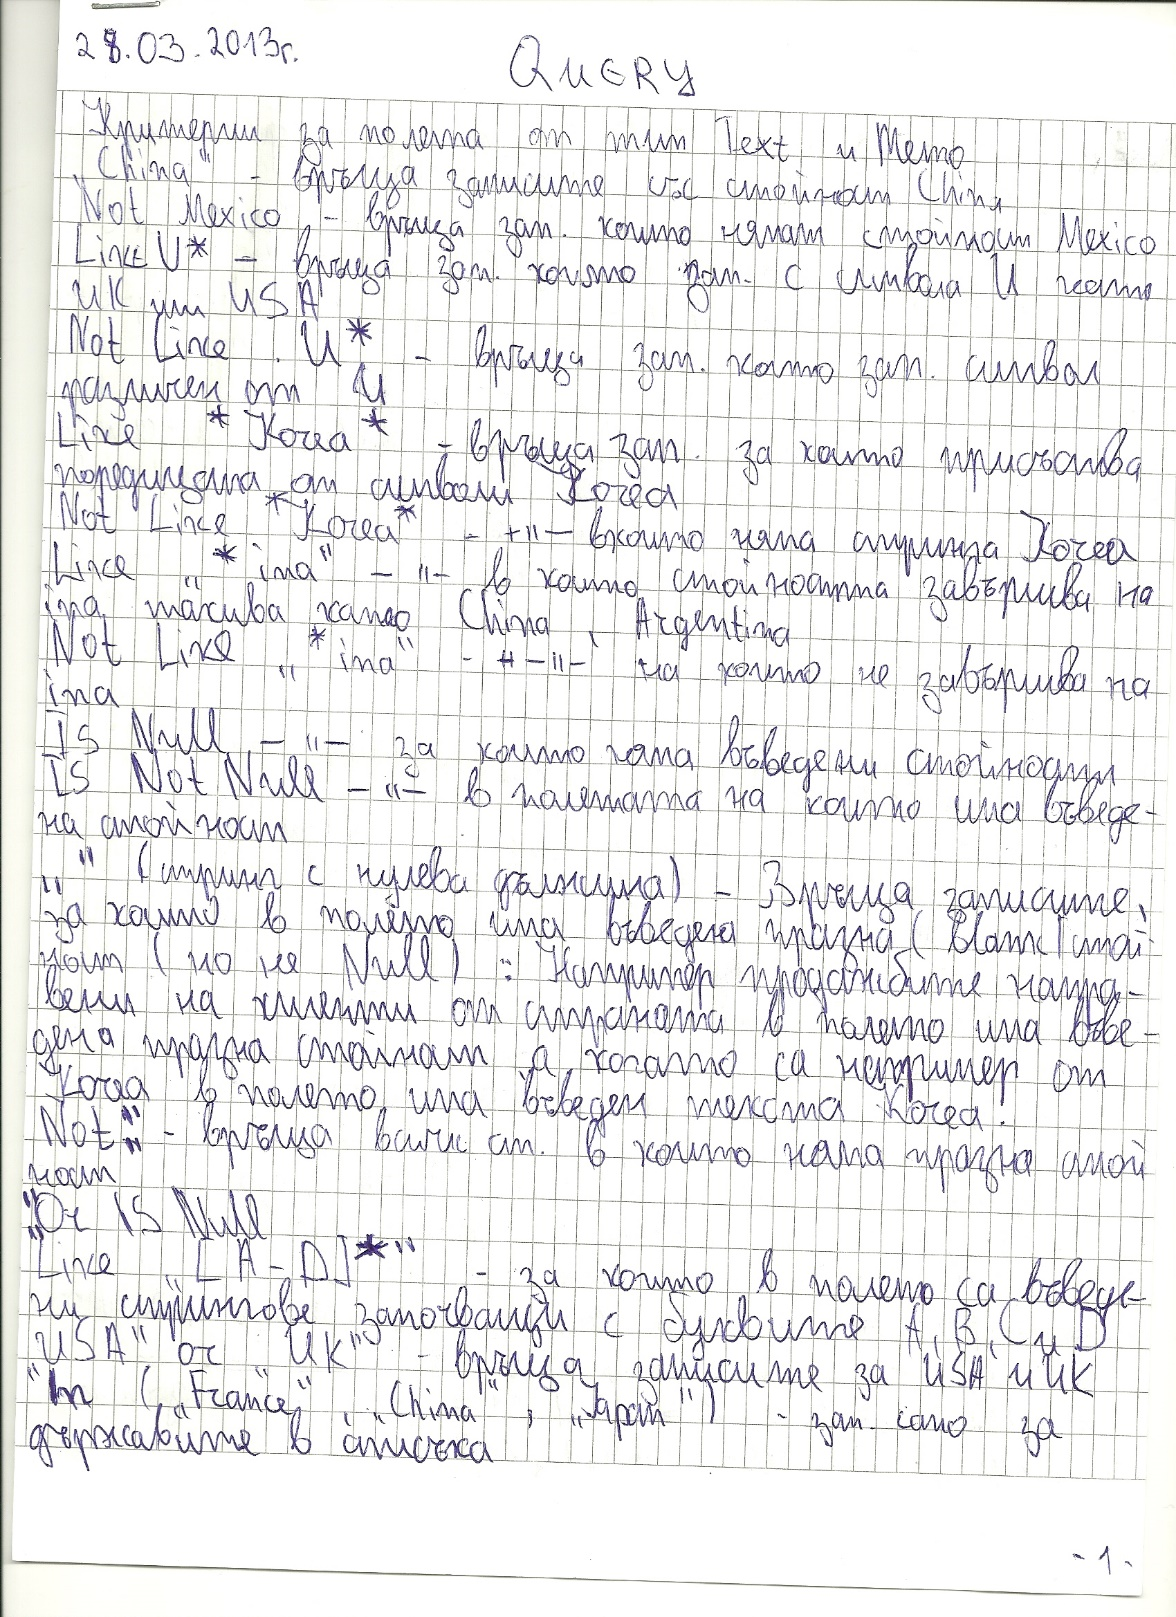 28.03.2013г.
QUERY
Критерии за полета от тип Text и Memo
„China" - връща записите със стойност China
Not Mexico - връща зап. които нямат стойност Mexico
Like U* - връща зап. които зап. с символа U като
UK или USA
Not Like U* - връща зап. които зап. символ
различен от U
Like *Korea* - връща зап. за които присъства
поредицата от символи Korea
Not Like *Korea* - -"- в които няма стринга Korea
Like „*ina" - -"- в които стойността завършва на
ina такива като China, Argentina
Not Like „*ina" - -"- на които не завършва на
ina
IS Null -"- за които няма въведени стойности
IS Not Null -"- в полетата на които има въведе-
на стойност
„ " (стринг с нулева дължина) - Връща записите,
за които в полето има въведена празна (Blank) стой-
ност (но не Null) : Например продажбите напра-
вени на клиенти от страната в полето има въве-
дена празна стойност, а когато са например от
Korea в полето има въведен текста Korea.
Not „" - връща всички ст. в които няма празна стой
ност
"" Or IS Null
Like „[A-D]*" - за които в полето са въведе-
ни стрингове започващи с буквите A, B, C и D
"USA" or "UK" - връща записите за USA и UK
In („France", „China", „Japan") - зап. само за
държавите в списъка
- 1 -